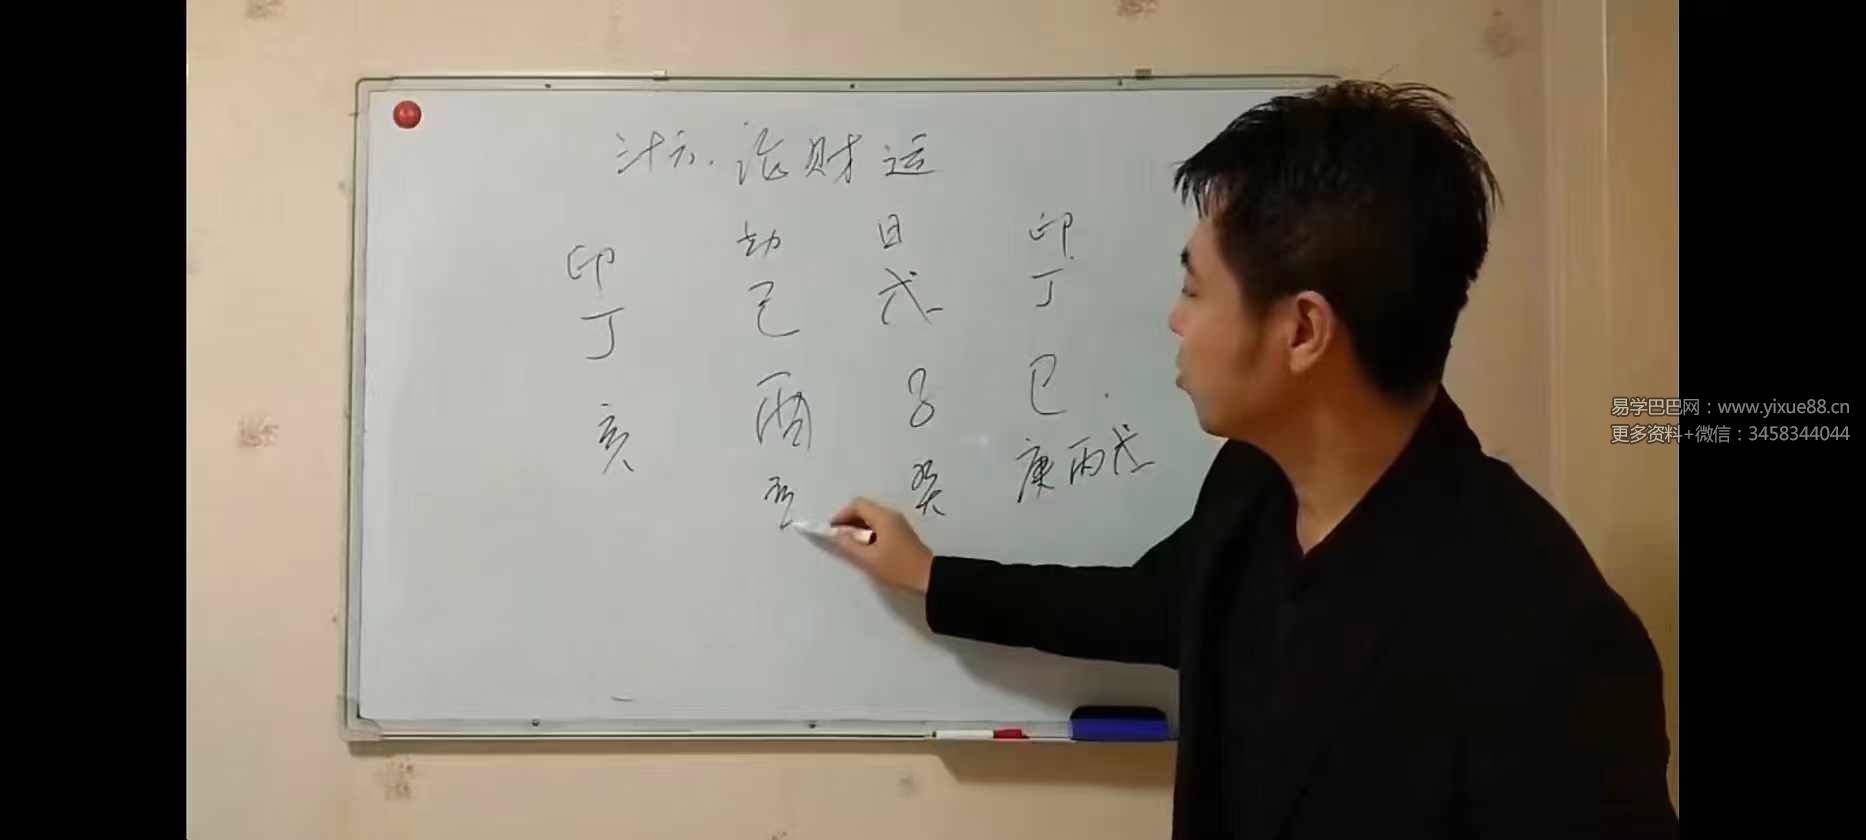 三十六. 论财运
印 劫 日 印
丁 己 戊 丁
亥 酉 子 巳
辛 癸 庚丙戊
易学巴巴网：www.yixue88.cn
更多资料+微信：3458344044